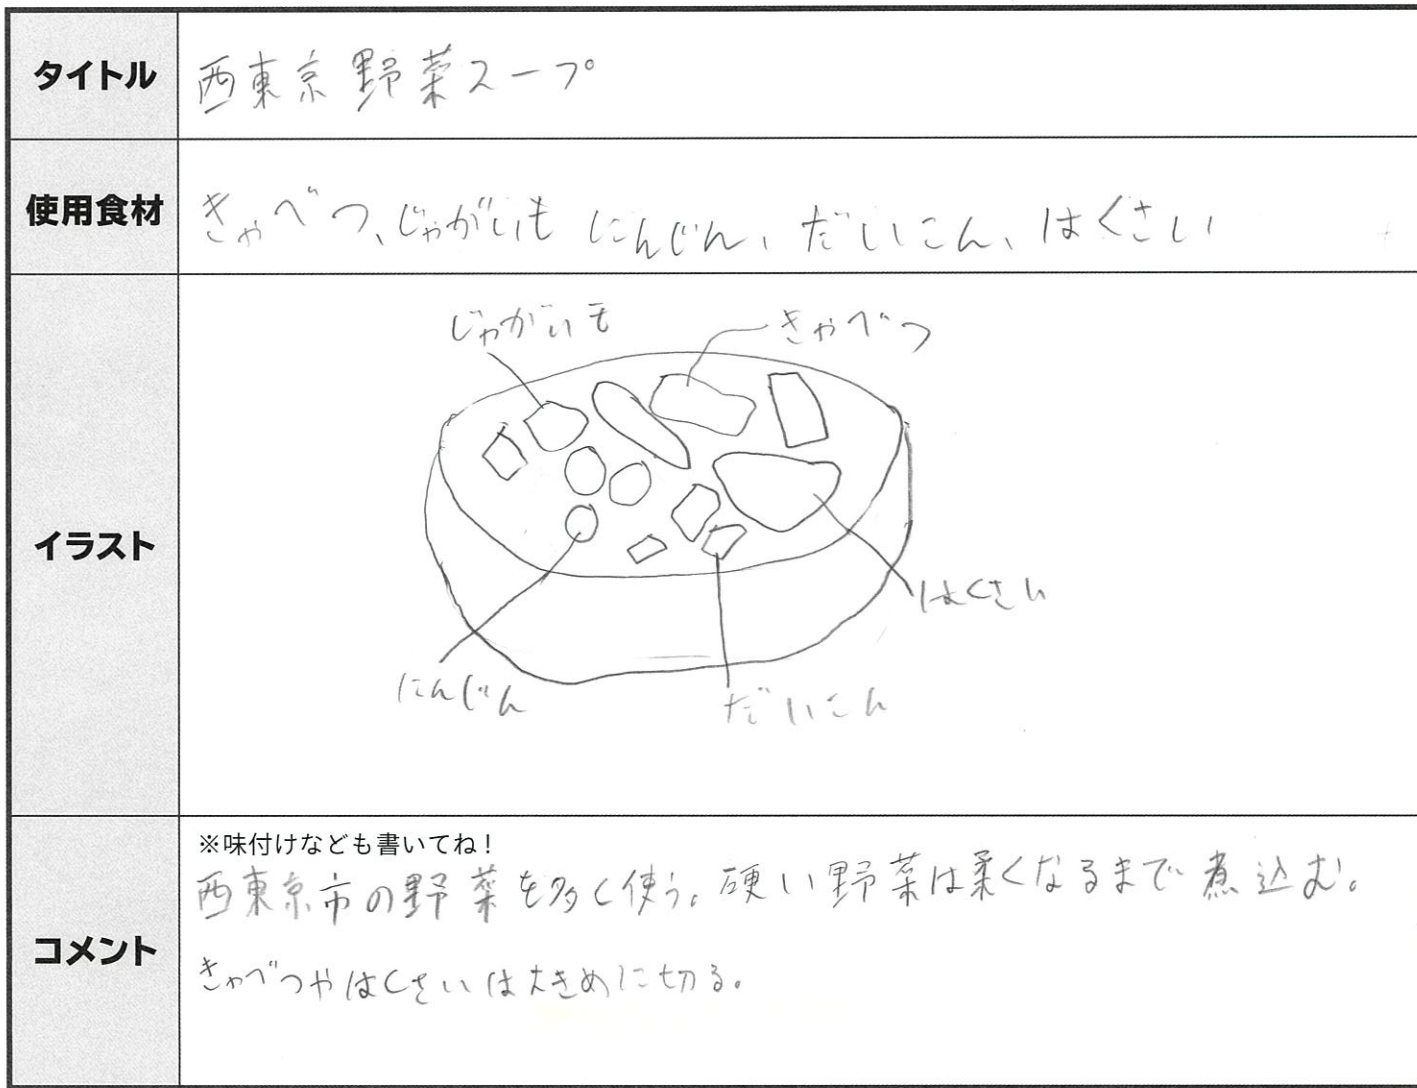 タイトル
西東京野菜スープ
使用食材
きゃべつ、じゃがいも にんじん、だいこん、はくさい
イラスト
じゃがいも
きゃべつ
はくさい
にんじん
だいこん
コメント
※味付けなども書いてね!
西東京市の野菜を多く使う。硬い野菜は柔くなるまで煮込む。
きゃべつやはくさいは大きめに切る。